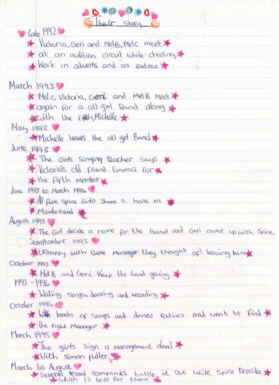 Their story
Late 1992
Victoria, Geri and Mel B, Melc meet
at an audition crowd while checking
Work in adverts and as extras
March 1993
Mel c, Victoria, and Mel B meet
again for a all girl band along
with the fifth, Michelle
May 1993
Michelle leaves the all girl Band
June 1993
The girls singing teacher says
Victoria's old friend Emma for
the fifth member
June 1993 to March 1994
All five spice girls share a house in
Maidenhead
August 1993
The Girl decide a name for the band and can came up with Spice
September 1993
Unhappy with there manager they thought of leaving him
October 1993
Mel B and Geri keep the band going
1993 - 1995
Writing songs, dancing and recording
October 1994
With books of songs and dance routines and want to find
the right Manager
March 1995
The girls sign a management deal
With Simon fuller
March to August
Several Record companies battle it out while Spice decide
which is best for them